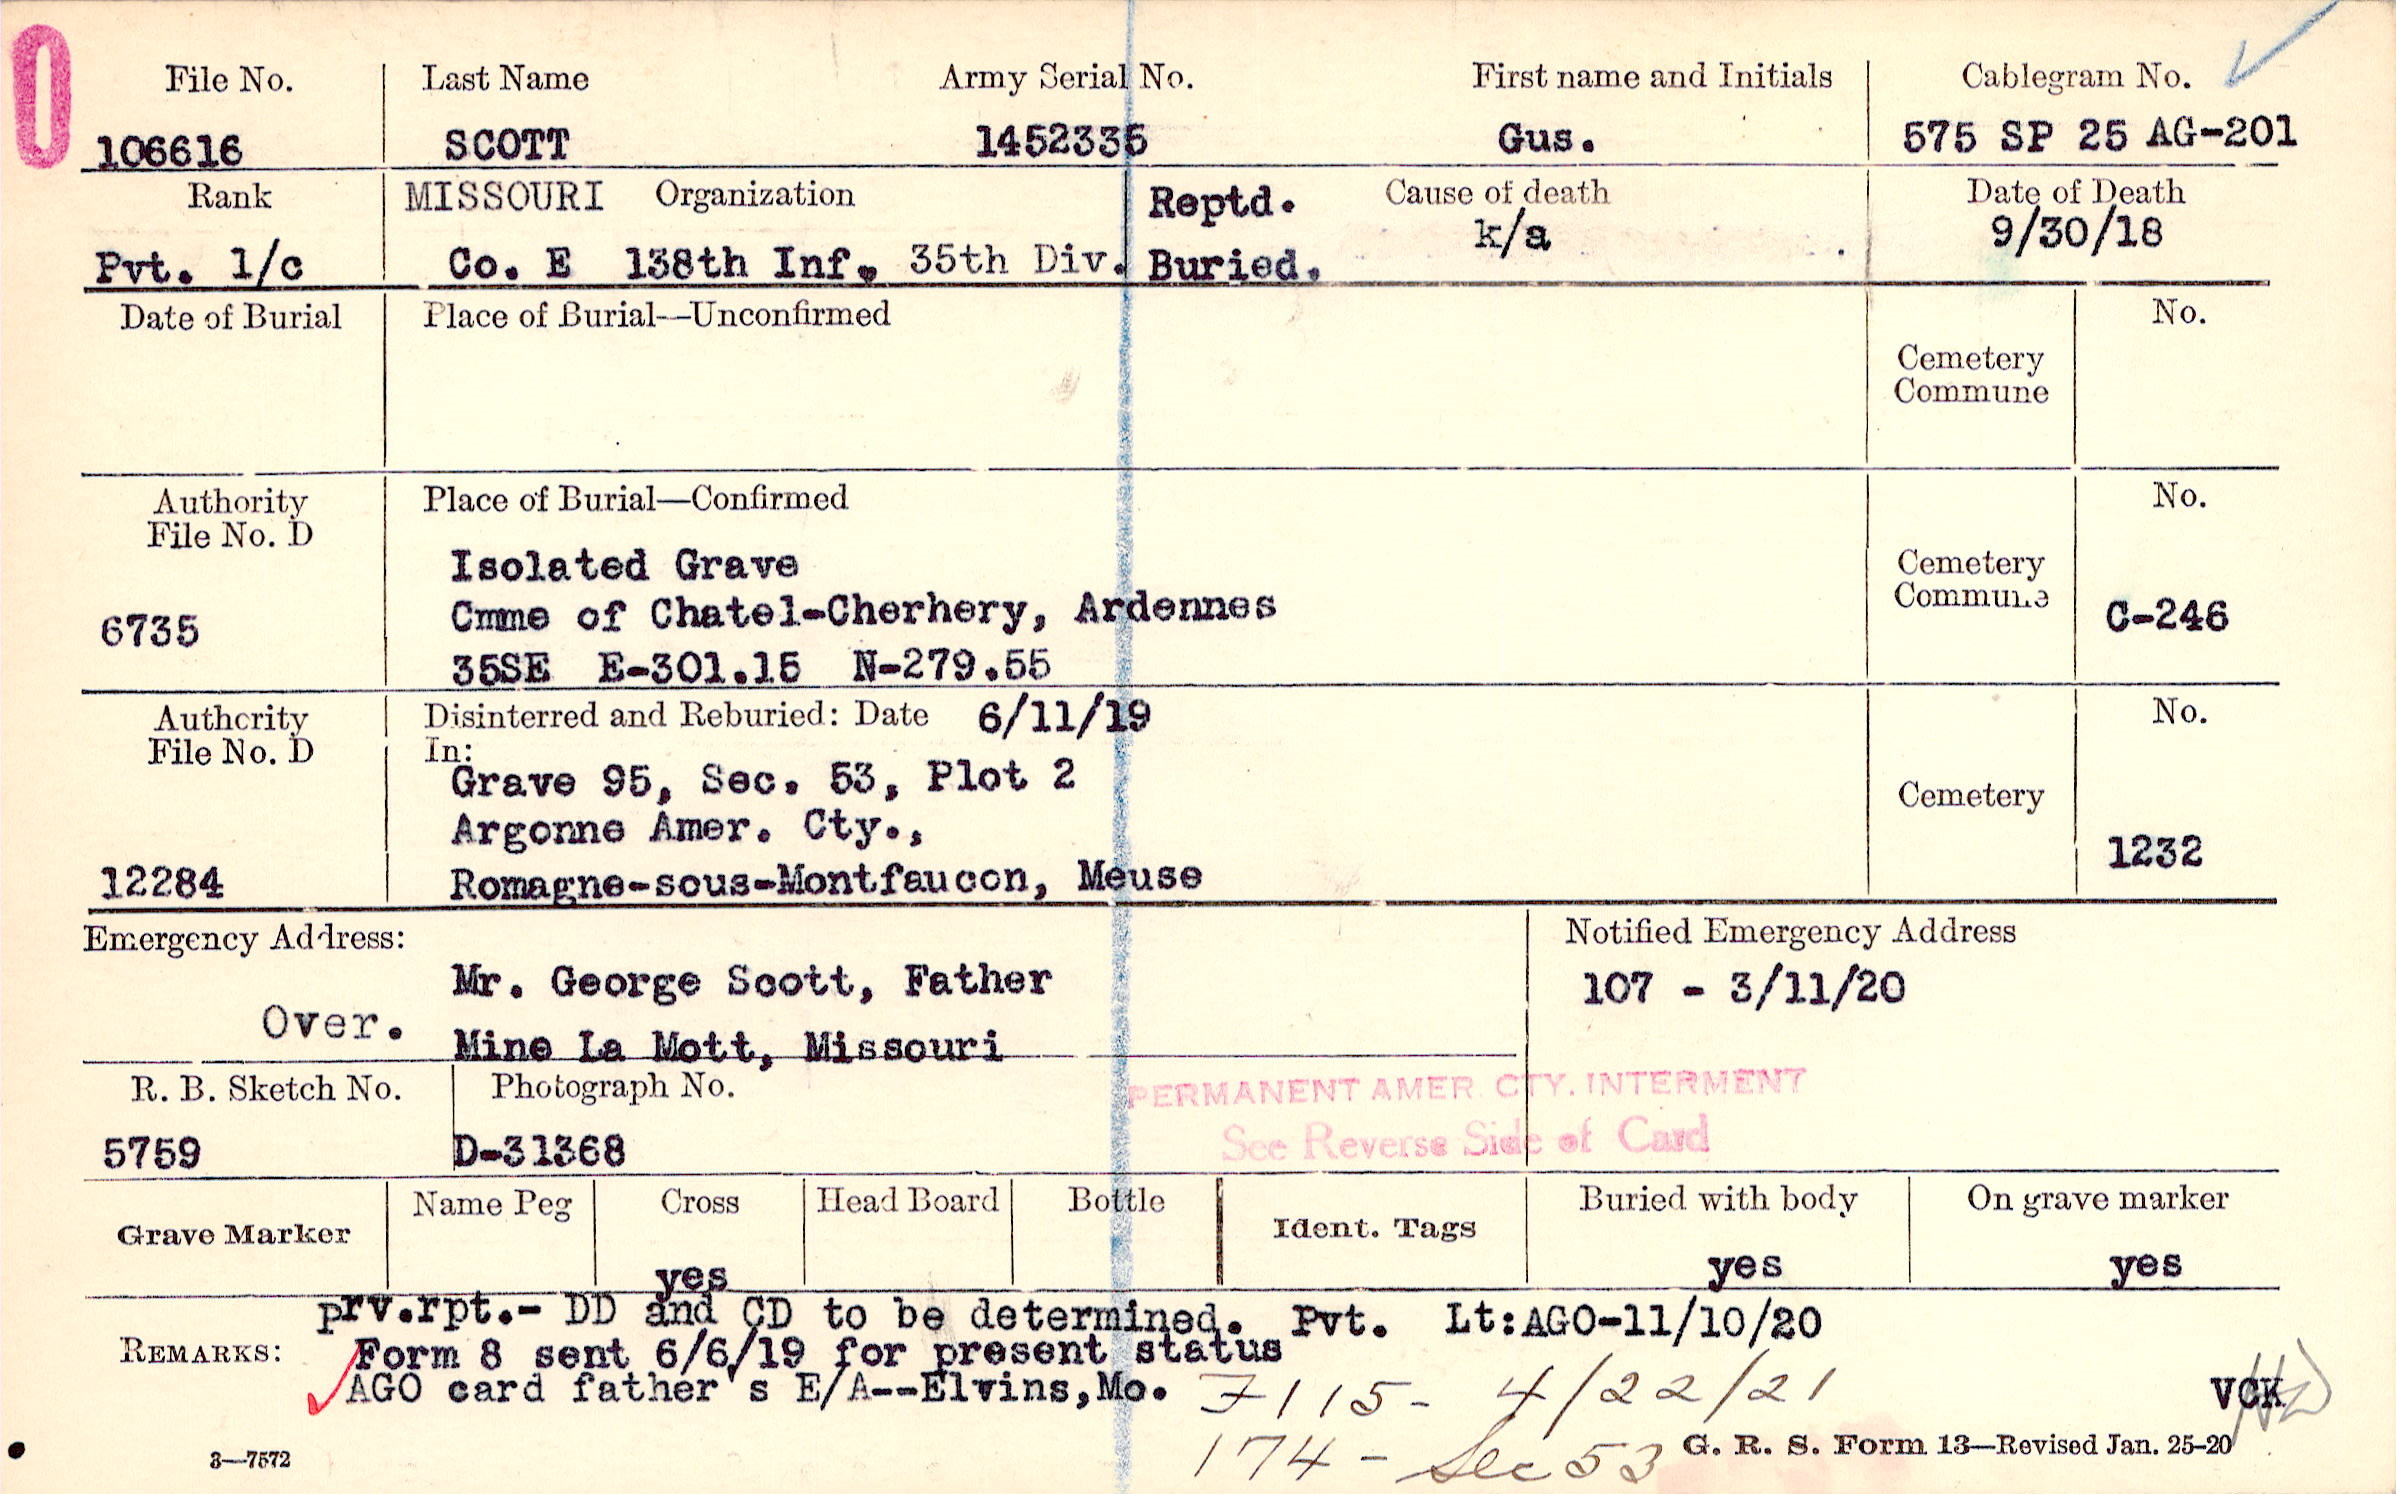 0
File No. Last Name Army Serial No. First name and Initials Cablegram No.
106616 SCOTT 1452335 Gus. 575 SP 25 AG-201
Rank MISSOURI Organization Reptd. Cause of death Date of Death
Pvt. 1/c Co. E 138th Inf. 35th Div. Buried. k/a 9/30/18
Date of Burial Place of Burial—Unconfirmed No.
Cemetery
Commune
Authority Place of Burial—Confirmed No.
File No. D
Isolated Grave Cemetery
6735 Cmme of Chatel-Cherhery, Ardennes Commune C-246
35SE E-301.15 N-279.55
Authority Disinterred and Reburied: Date 6/11/19 No.
File No. D In:
Grave 95, Sec. 53, Plot 2 Cemetery
Argonne Amer. Cty.,
12284 Romagne-sous-Montfaucon, Meuse 1232
Emergency Address: Notified Emergency Address
Mr. George Scott, Father 107 - 3/11/20
Over. Mine La Mott, Missouri
R. B. Sketch No. Photograph No. PERMANENT AMER. CTY. INTERMENT
5759 D-31368 See Reverse Side of Card
Grave Marker Name Peg Cross Head Board Bottle Ident. Tags Buried with body On grave marker
yes yes yes
prv.rpt.- DD and CD to be determined. Pvt. Lt:AGO-11/10/20
REMARKS: Form 8 sent 6/6/19 for present status
AGO card father's E/A--Elvins,Mo. 7115- 4/22/21 VCK
174 - Sec 53
3—7572 G. R. S. Form 13—Revised Jan. 25-20